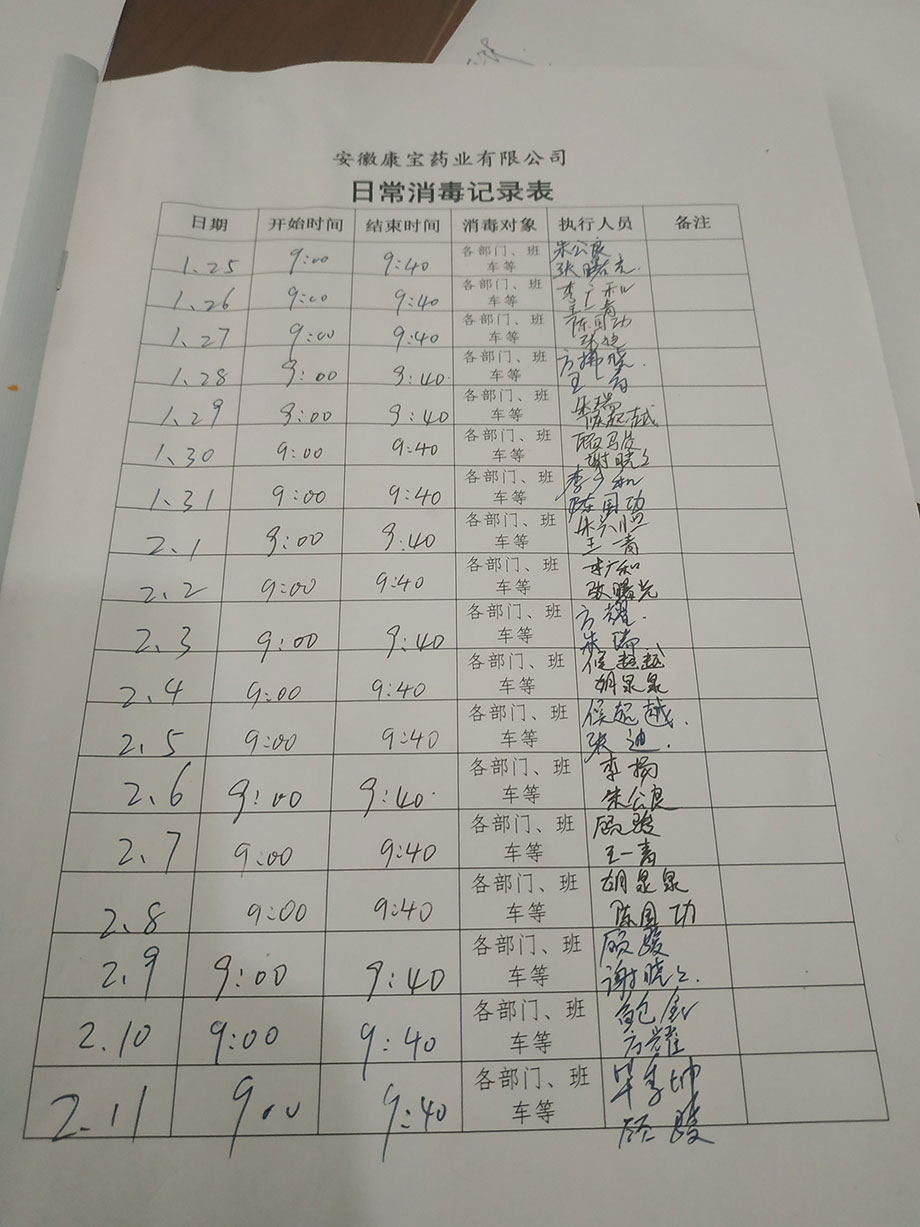 安徽康宝药业有限公司
日常消毒记录表
日期 开始时间 结束时间 消毒对象 执行人员 备注
1.25 9:00 9:40 各部门、班车等 朱公良 张曙光.
1.26 9:00 9:40 各部门、班车等 李广和 王一青
1.27 9:00 9:40 各部门、班车等 陈国功 张迪
1.28 9:00 9:40. 各部门、班车等 王一青
1.29 9:00 9:40 各部门、班车等 朱瑞 侯起越
1.30 9:00 9:40 各部门、班车等 谢晓
1.31 9:00 9:40 各部门、班车等 李广和 陈国功
2.1 9:00 9:40 各部门、班车等 王一青
2.2 9:00 9:40 各部门、班车等 李广和 张曙光
2.3 9:00 9:40 各部门、班车等 方耀. 朱瑞.
2.4 9:00 9:40 各部门、班车等 胡泉泉
2.5 9:00 9:40 各部门、班车等 侯起越. 张迪.
2.6 9:00 9:40. 各部门、班车等 李杨 朱公良
2.7 9:00 9:40 各部门、班车等 顾骏 王一青
2.8 9:00 9:40 各部门、班车等 胡泉泉 陈国功
2.9 9:00 9:40 各部门、班车等 顾骏 谢晓
2.10 9:00 9:40 各部门、班车等 方耀
2.11 9:00 9:40 各部门、班车等 顾骏